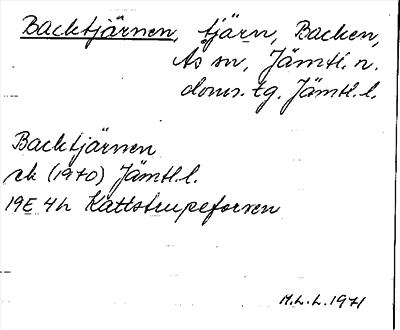 Backtjärnen, tjärn, Backen,
Ås sn, Jämtl. n.
doms. tg. Jämtl. l.
Backtjärnen
rk (1970) Jämtl. l.
19E 4h Kattstrupeforsen
M.L.L. 1971